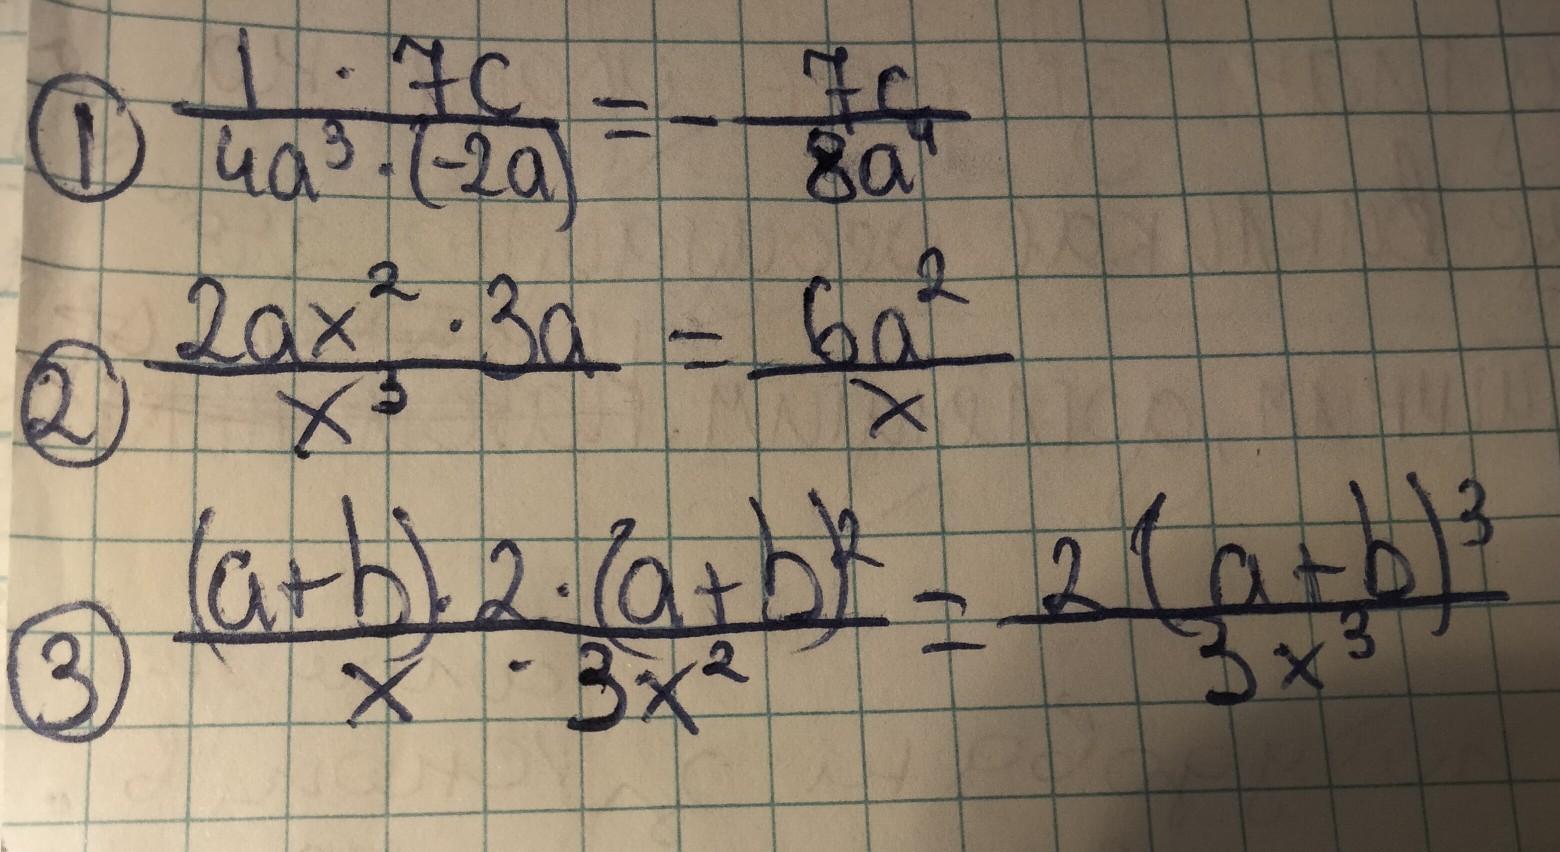 ① \frac{1 \cdot 7c}{4a^3 \cdot (-2a)} = -\frac{7c}{8a^4}
② \frac{2ax^2 \cdot 3a}{x^3} = \frac{6a^2}{x}
③ \frac{(a+b) \cdot 2 \cdot (a+b)^2}{x \cdot 3x^2} = \frac{2(a+b)^3}{3x^3}